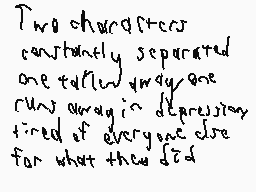 Two characters
constantly separated
one tallen away, one
runs away in depression
tired of everyone else
for what they did